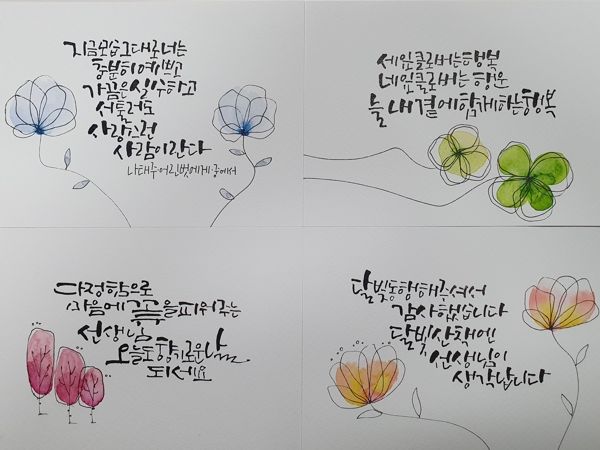 지금모습그대로너는
충분히예쁘고
가끔은실수하고
서툴러도
사랑스런
사람이란다
나태주·어린벗에게·중에서
세잎클로버는행복
네잎클로버는 행운
늘 내곁에함께하는행복
다정함으로
마음에 꽃을피워주는
선생님
오늘도향기로운날
되세요
달빛동행해주셔서
감사했습니다
달빛산책엔
선생님이
생각납니다